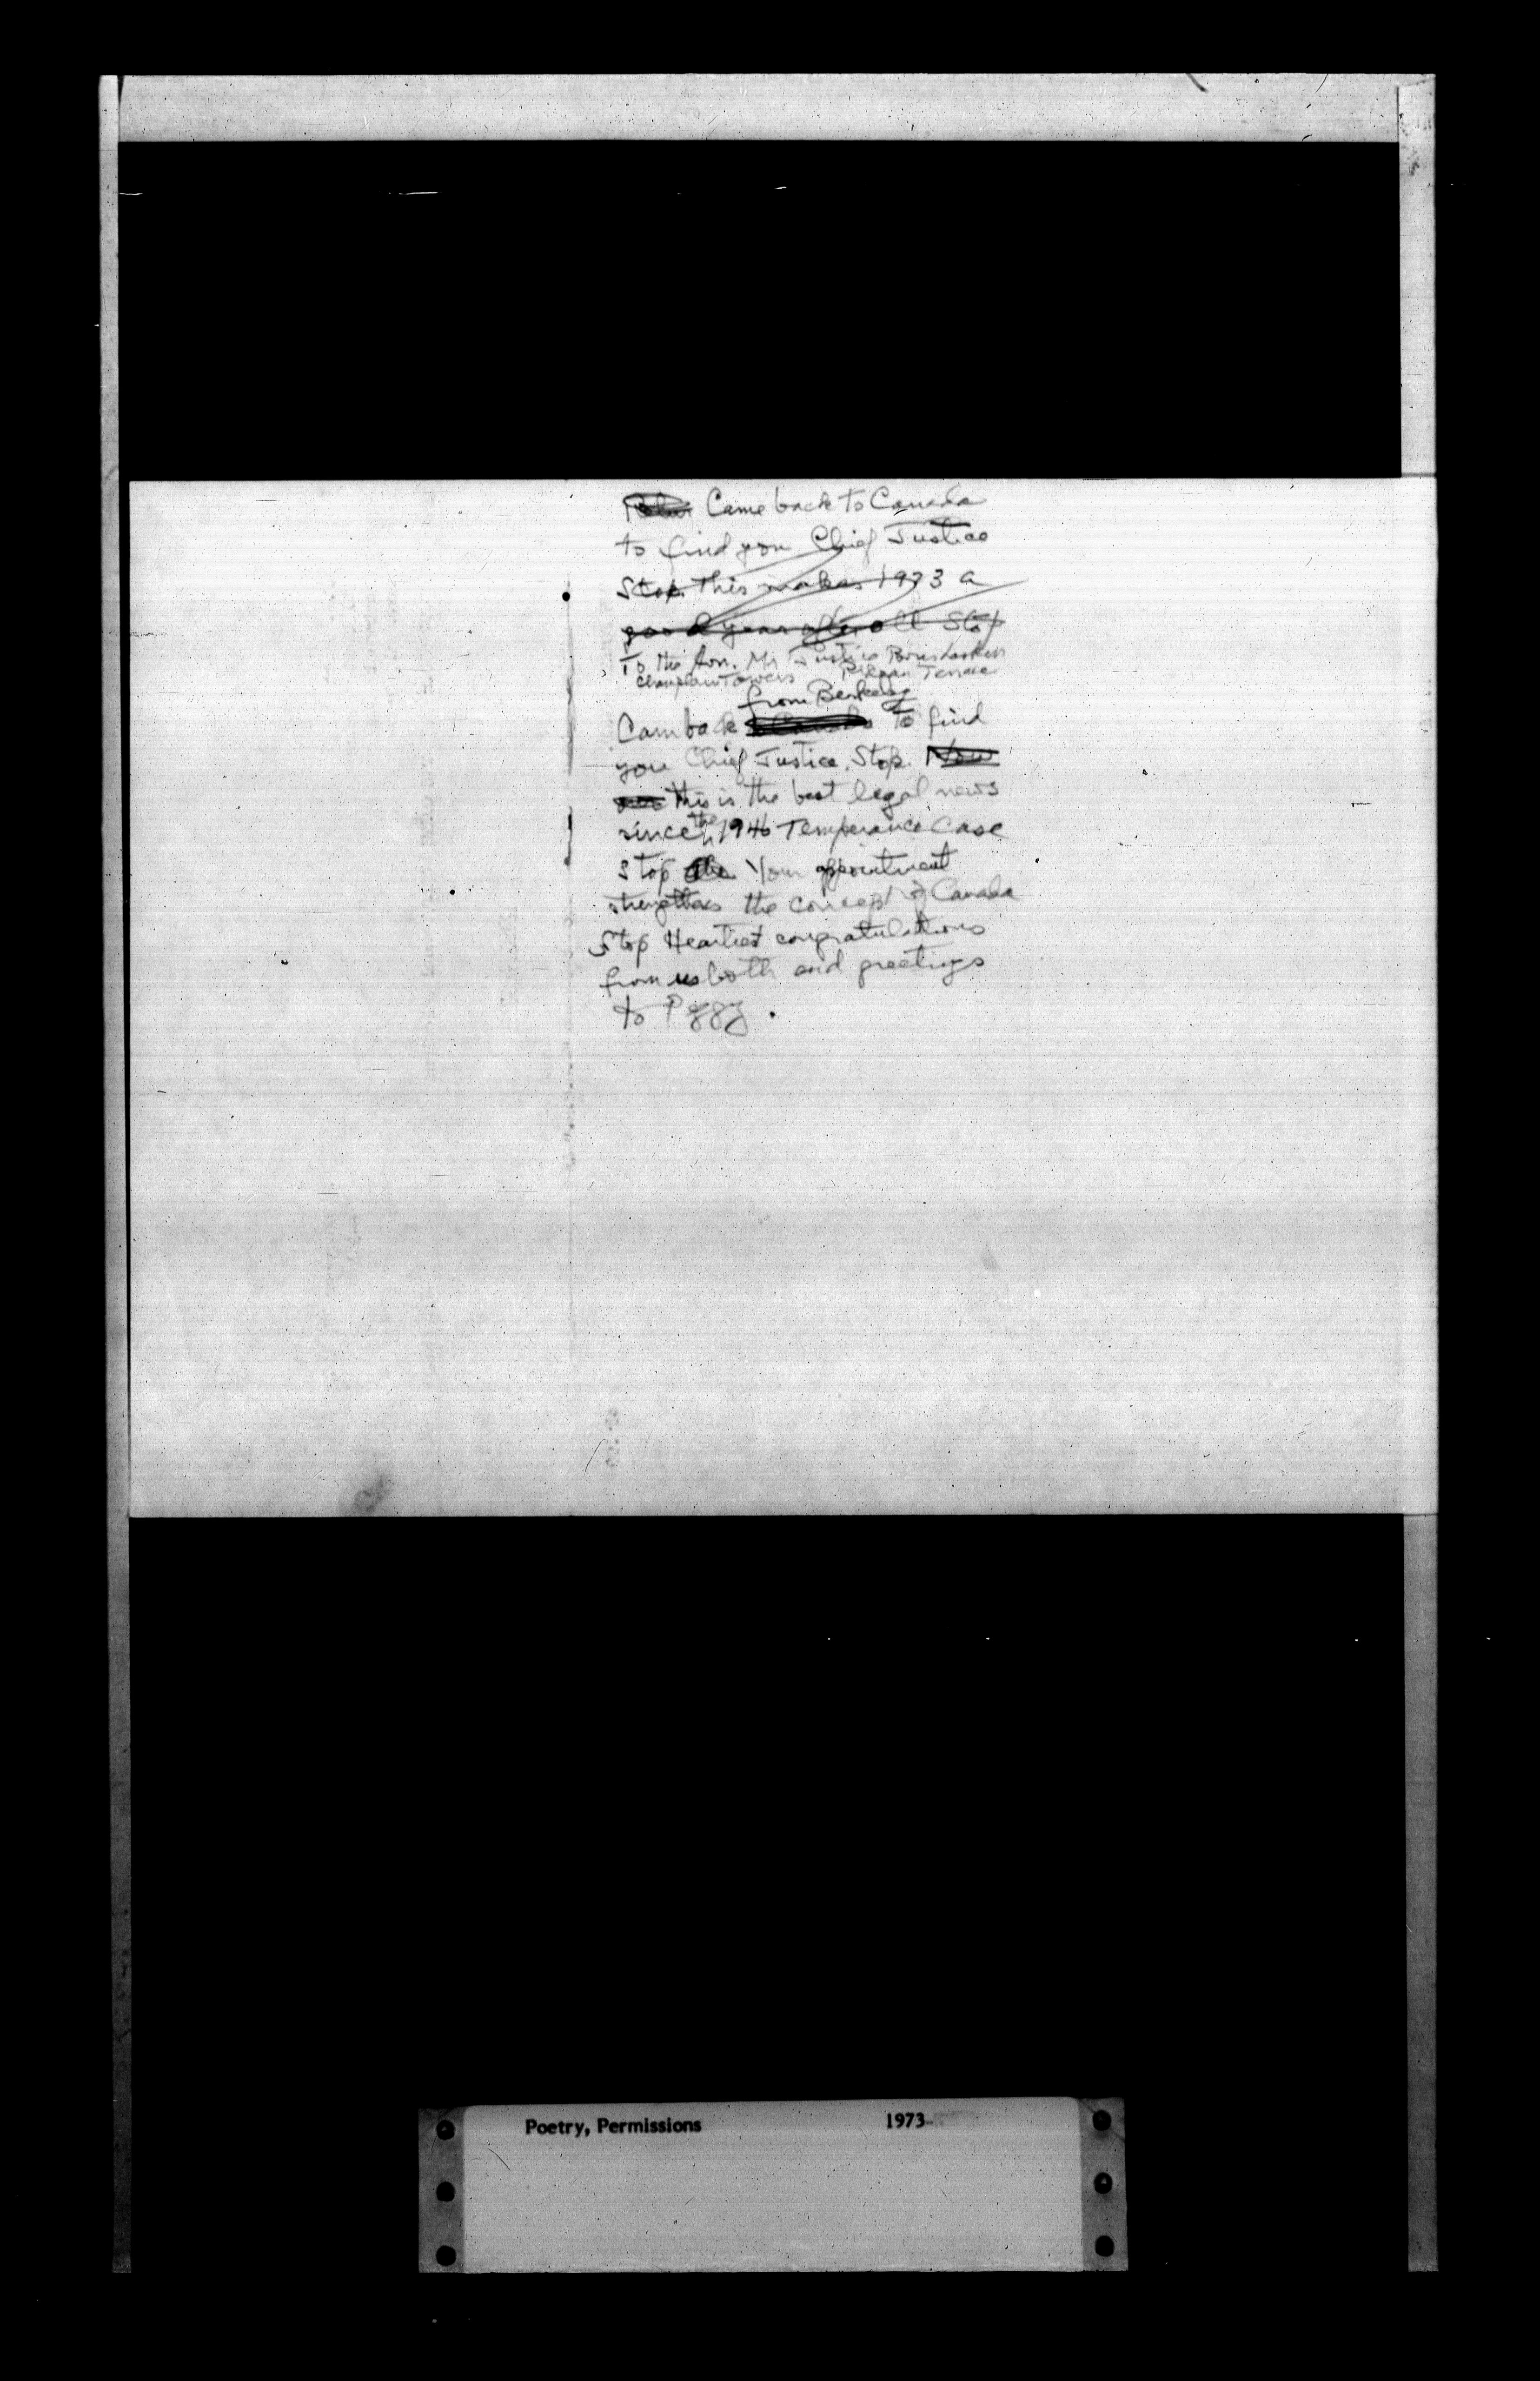 Came back to Canada
to find you Chief Justice
Stop. This makes 1973 a
good year after all Stop
To the Hon. Mr Justice Bora Laskin
Champlain Towers Terrace
from Berkeley
Cam back to find
you Chief Justice. Stop. Now
this is the best legal news
the
since 1946 Temperance Case
Stop Your appointment
strengthens the concept of Canada
Stop Heartiest congratulations
from us both and greetings
to Peggy.
Poetry, Permissions 1973